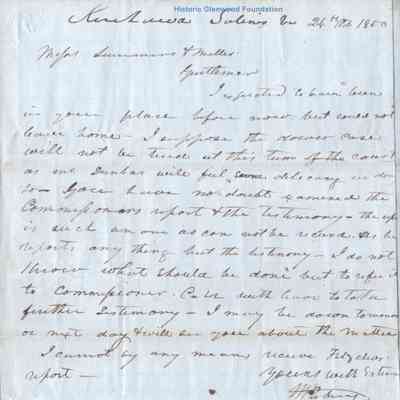 Historic Glenwood Foundation
Kanhawa Salines Va 24th Feb 1850
Messrs Summers & Miller
Gentlemen
I expected to have been
in your place before now but could not
leave home – I suppose the dower case
will not be tried at this term of the court
as Mr Dunbar will feel some delicacy in do
so – You have no doubt examined the
Commissioners report & the testimony – the
is such an one as can not be recvd. As he
reports any thing but the testimony – I do not
know what should be done but to refer it
to Commissioner with leave to take
further testimony – I may be down tomorrow
or next day & will see you about the matter
I cannot by any means receive
report –
Yours with Esteem